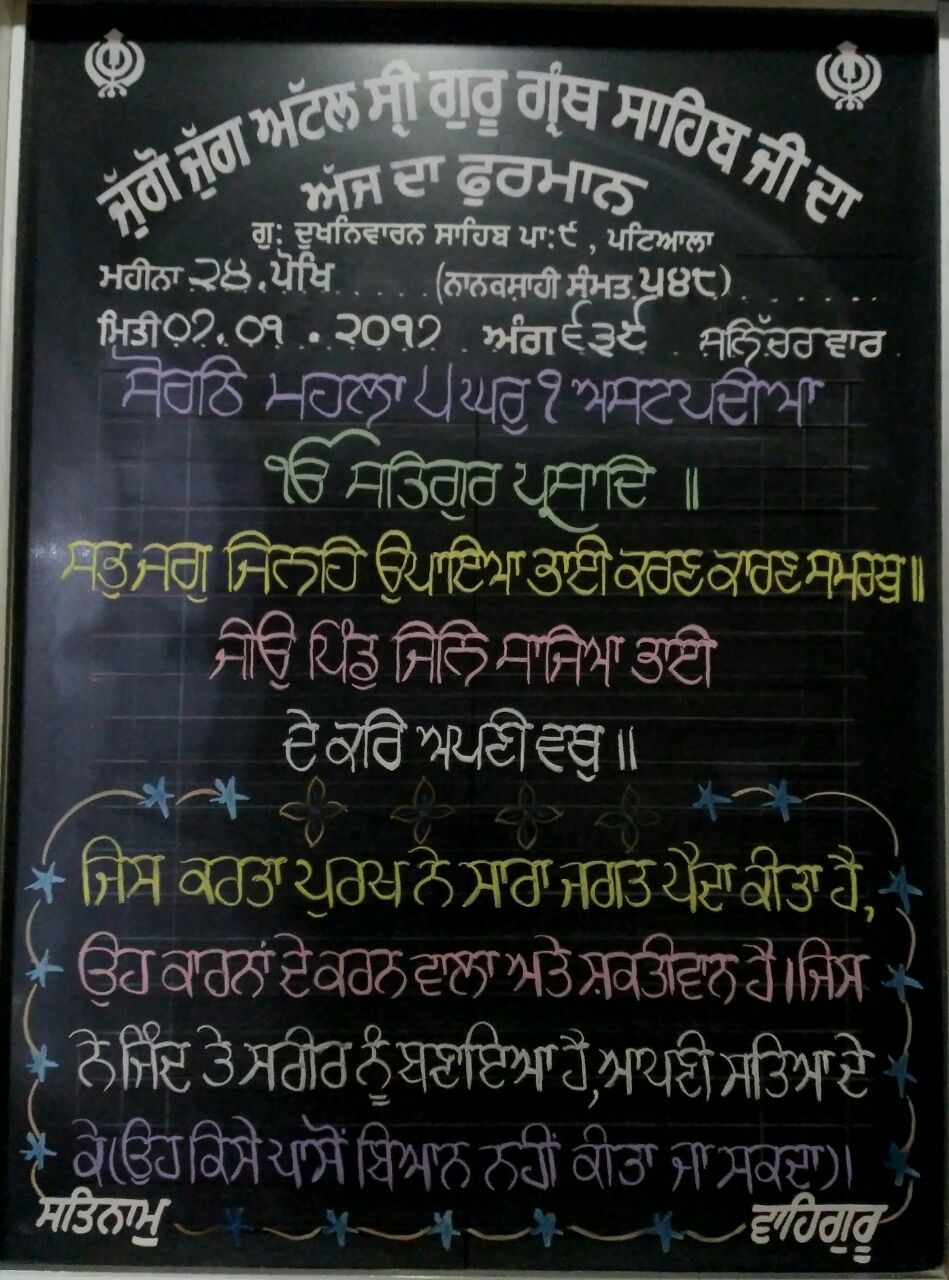 ਜੁੱਗੋ ਜੁੱਗ ਅੱਟਲ ਸ੍ਰੀ ਗੁਰੂ ਗ੍ਰੰਥ ਸਾਹਿਬ ਜੀ ਦਾ
ਅੱਜ ਦਾ ਫੁਰਮਾਨ
ਗੁ: ਦੁਖਨਿਵਾਰਨ ਸਾਹਿਬ ਪਾ:੯ , ਪਟਿਆਲਾ
ਮਹੀਨਾ ੨੪.ਪੋਖਿ (ਨਾਨਕਸ਼ਾਹੀ ਸੰਮਤ ੫੪੮)
ਮਿਤੀ 0੭.0੧.੨0੧੭ ਅੰਗ ੬੩੯ ਸ਼ਨਿੱਚਰ ਵਾਰ
ਸੋਰਠਿ ਮਹਲਾ ੫ ਘਰੁ ੧ ਅਸਟਪਦੀਆ
ੴ ਸਤਿਗੁਰ ਪ੍ਰਸਾਦਿ ॥
ਸਭੁ ਜਗੁ ਜਿਨਹਿ ਉਪਾਇਆ ਭਾਈ ਕਰਣ ਕਾਰਣ ਸਮਰਥੁ ॥
ਜੀਉ ਪਿੰਡੁ ਜਿਨਿ ਸਾਜਿਆ ਭਾਈ
ਦੇ ਕਰਿ ਅਪਣੀ ਵਥੁ ॥
ਜਿਸ ਕਰਤਾ ਪੁਰਖ ਨੇ ਸਾਰਾ ਜਗਤ ਪੈਦਾ ਕੀਤਾ ਹੈ,
ਉਹ ਕਾਰਨਾਂ ਦੇ ਕਰਨ ਵਾਲਾ ਅਤੇ ਸ਼ਕਤੀਵਾਨ ਹੈ। ਜਿਸ
ਨੇ ਜਿੰਦ ਤੇ ਸਰੀਰ ਨੂੰ ਬਣਾਇਆ ਹੈ, ਆਪਣੀ ਸਤਿਆ ਦੇ
ਕੇ (ਉਹ ਕਿਸੇ ਪਾਸੋਂ ਬਿਆਨ ਨਹੀਂ ਕੀਤਾ ਜਾ ਸਕਦਾ)।
ਸਤਿਨਾਮੁ ਵਾਹਿਗੁਰੂ